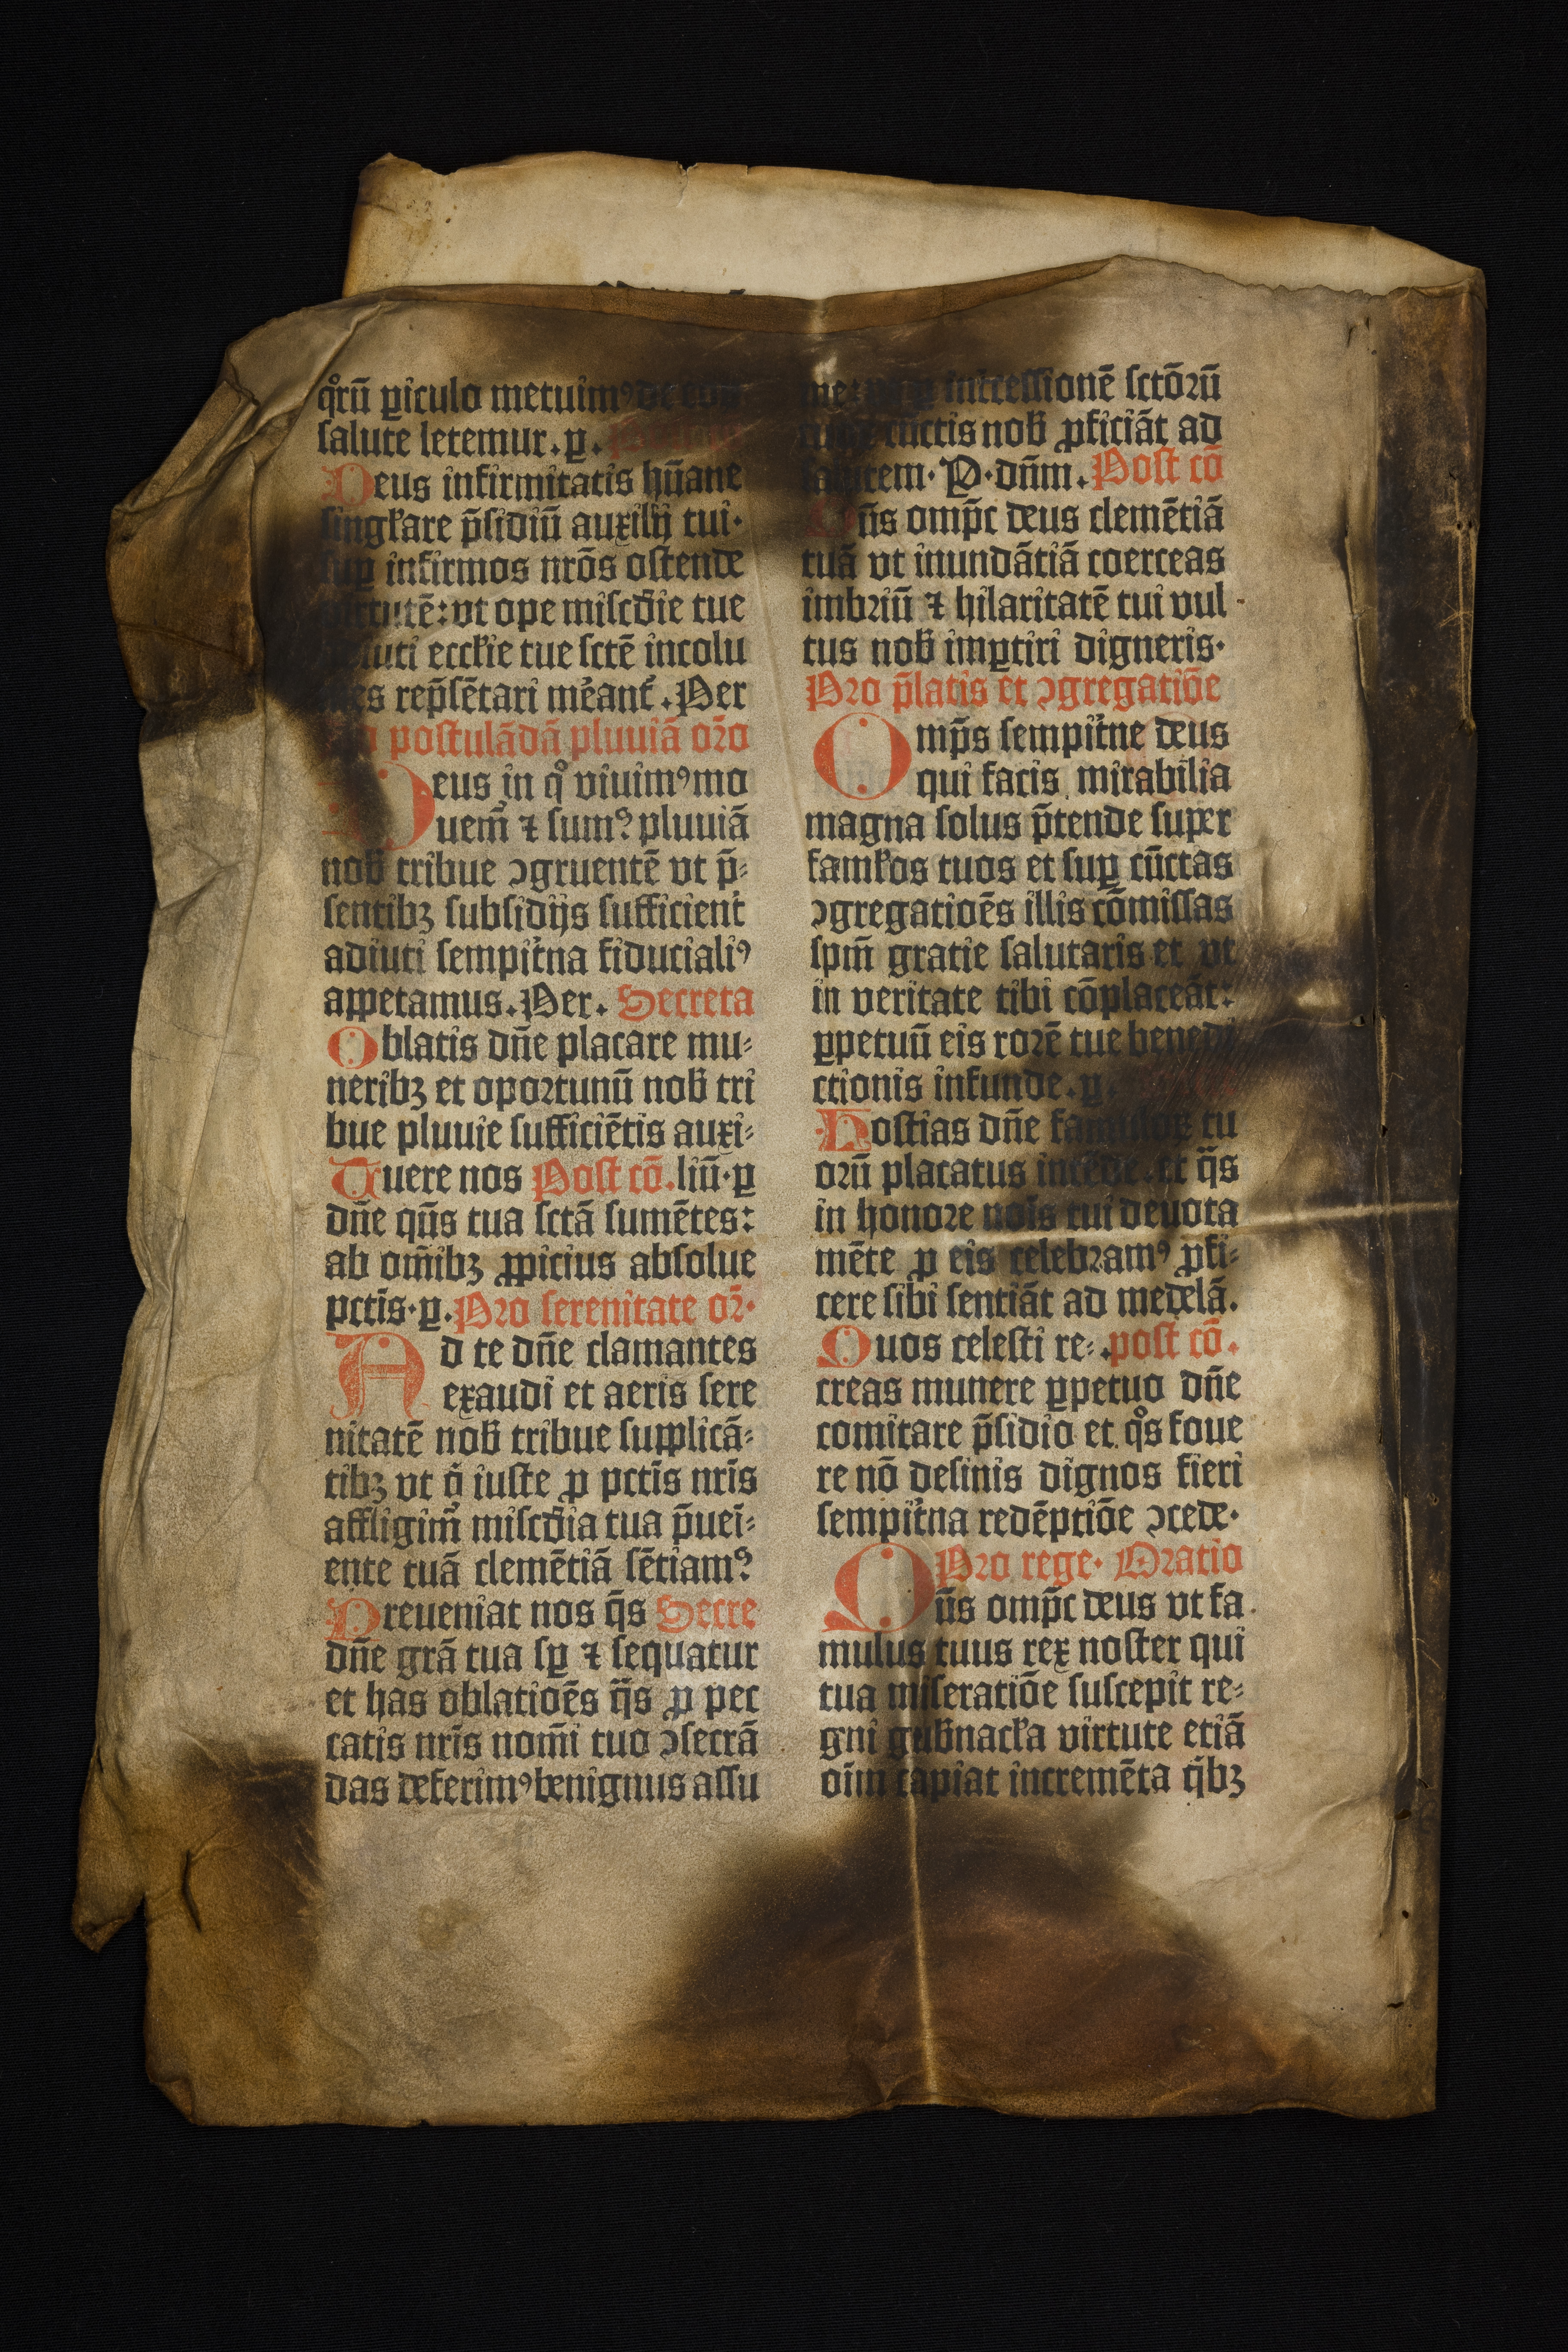 qͦrū ꝑiculo metuimꝰ de eoꝝ
salute letemur. ꝑ.
Deus infirmitatis hūane
singƚare p̄sidiū auxilij tui·
suꝑ infirmos nrōs ostende
virtutē: vt ope misc̄die tue
adiuti eccƚie tue sctē incolu
mes rep̄sētari meāt̉. Per
postulādā pluuiā or̄o
Deus in qͦ viuimꝰ mo
uem̄ ⁊ sumꝰ pluuiā
nob̄ tribue ꝯgruentē vt p̄⸗
sentibꝫ subsidijs sufficient̉
adiuti sempit̉na fiducialiꝰ
appetamus. Per. Secreta
Oblatis dn̄e placare mu⸗
neribꝫ et oportunū nob̄ tri
bue pluuie sufficiētis auxi⸗
Tuere nos Post cō. liū· ꝑ
dn̄e qūs tua sctā sumētes:
ab om̄ibꝫ ꝓpicius absolue
pctīs· ꝑ. Pro serenitate or̄·
Ad te dn̄e clamantes
exaudi et aeris sere
nitatē nob̄ tribue supplicā⸗
tibꝫ vt q̇ iuste ꝓ pctīs nrīs
affligim̄ misc̄dia tua p̄uei⸗
ente tuā clemētiā sētiamꝰ
Preueniat nos q̄s Secre
dn̄e grā tua sꝑ ⁊ sequatur
et has oblatioēs q̄s ꝓ pec
catis nrīs nom̄i tuo ꝯsecrā
das deferimꝰ benignus assu
int̉cessionē sctōrū
cūctis nob̄ ꝓficiāt ad
salutem· P· dn̄m. Post cō
Qūs omp̄c deus clemētiā
tuā vt inundātiā coerceas
imbriū ⁊ hilaritatē tui vul
tus nob̄ imꝑtiri digneris·
Pro p̄latis et ꝯgregatiōe
Omp̄s sempit̉ne deus
qui facis mirabilia
magna solus p̄tende super
famƚos tuos et suꝑ cūctas
ꝯgregatioēs illis cōmissas
spm̄ gratie salutaris et vt
in veritate tibi cōplaceāt:
ꝑpetuū eis rorē tue benedi
ctionis infunde. ꝑ.
Hostias dn̄e famuloꝝ tu
orū placatus intēde: et q̄s
in honore noīs tui deuota
mēte ꝓ eis celebramꝰ ꝓfi⸗
cere sibi sentiāt ad medelā.
Quos celesti re⸗ .post cō.
creas munere ꝑpetuo dn̄e
comitare p̄sidio et qͦs foue
re nō desinis dignos fieri
sempit̉na redēptiōe ꝯcede·
Pro rege· Oratio
Qūs omp̄c deus vt fa
mulus tuus rex noster qui
tua miseratiōe suscepit re⸗
gni gub̄nacƚa virtute etiā
oīm capiat incremēta q̇bꝫ